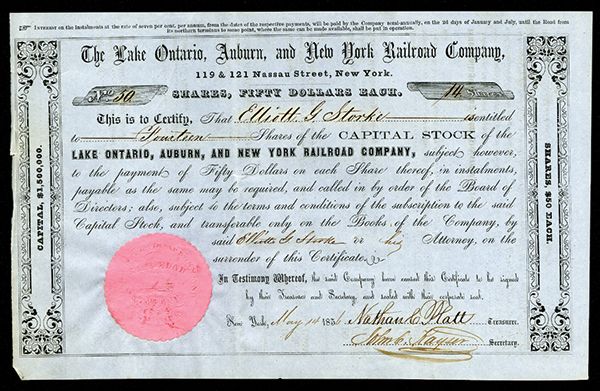 INTEREST on the instalments at the rate of seven per cent. per annum, from the dates of the respective payments, will be paid by the Company semi-annually, on the 2d days of January and July, until the Road from
its northern terminus to some point, where the same can be made available, shall be put in operation.
The Lake Ontario, Auburn, and New York Railroad Company,
119 & 121 Nassau Street, New York.
No. 50 14 Shares
SHARES, FIFTY DOLLARS EACH.
This is to Certify, That Elliott G. Storke is entitled
to Fourteen Shares of the CAPITAL STOCK of the
LAKE ONTARIO, AUBURN, AND NEW YORK RAILROAD COMPANY, subject however,
to the payment of Fifty Dollars on each Share thereof, in instalments,
payable as the same may be required, and called in by order of the Board of
Directors; also, subject to the terms and conditions of the subscription to the said
Capital Stock, and transferable only on the Books of the Company, by
said Elliott G Storke or his Attorney, on the
surrender of this Certificate.
In Testimony Whereof, the said Company have caused this Certificate to be signed
by their Treasurer and Secretary, and sealed with their corporate seal.
New York, May 14 185
Nathan C. Platt Treasurer.
Secretary.
CAPITAL, $1,500,000.
SHARES, $50 EACH.